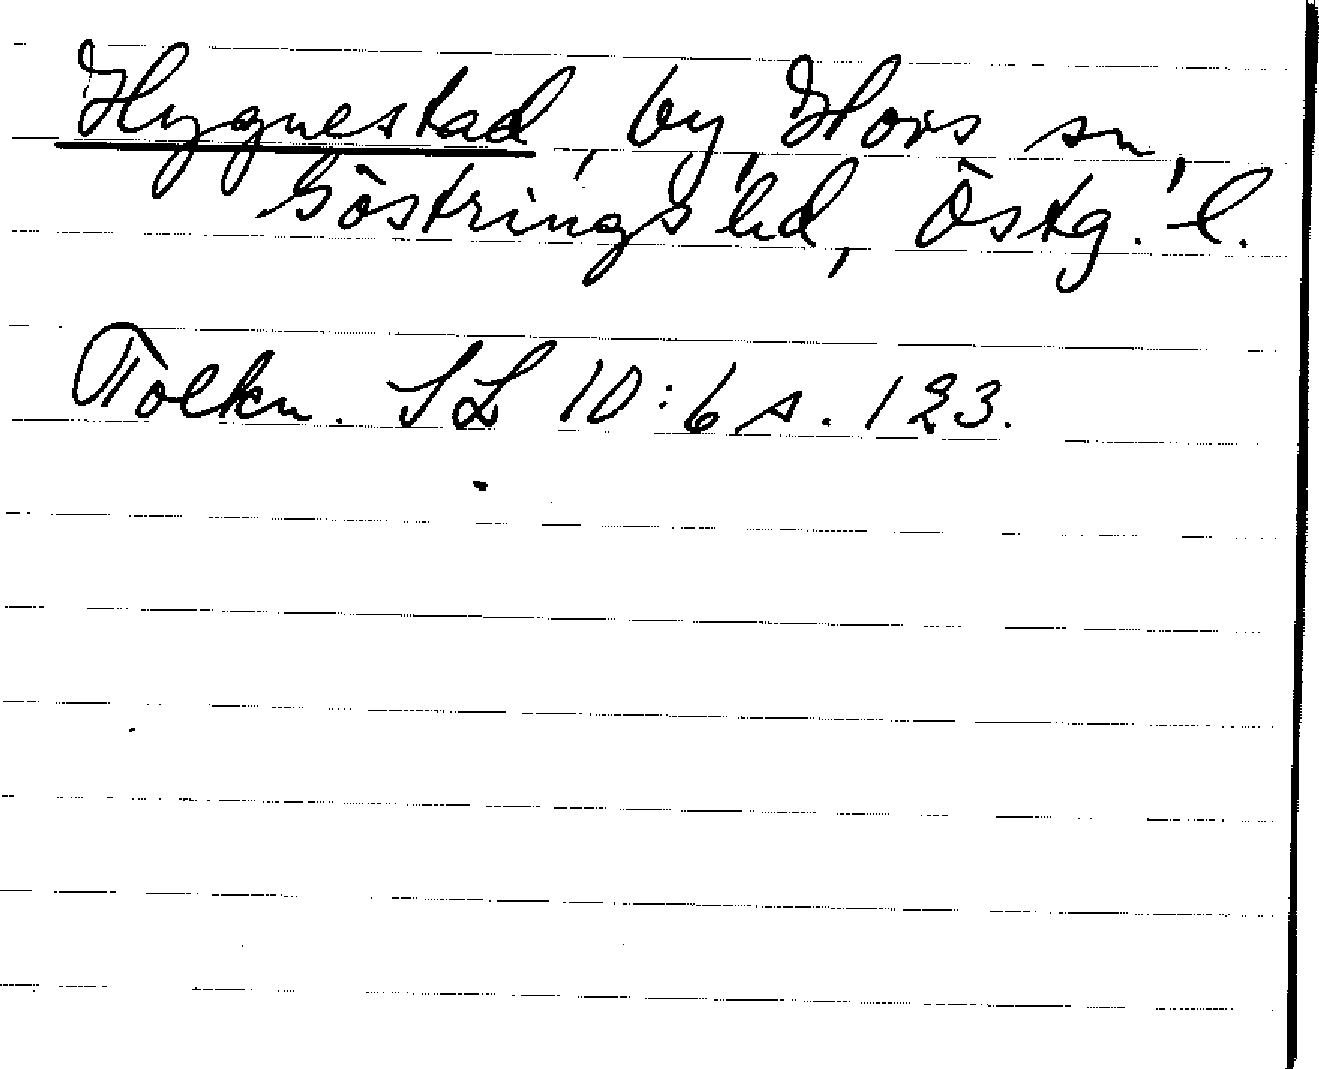 Hygnestad, by, Hovs sn,
Göstrings hd, Östg. l.
Tolkn. SL 10:6 s. 123.